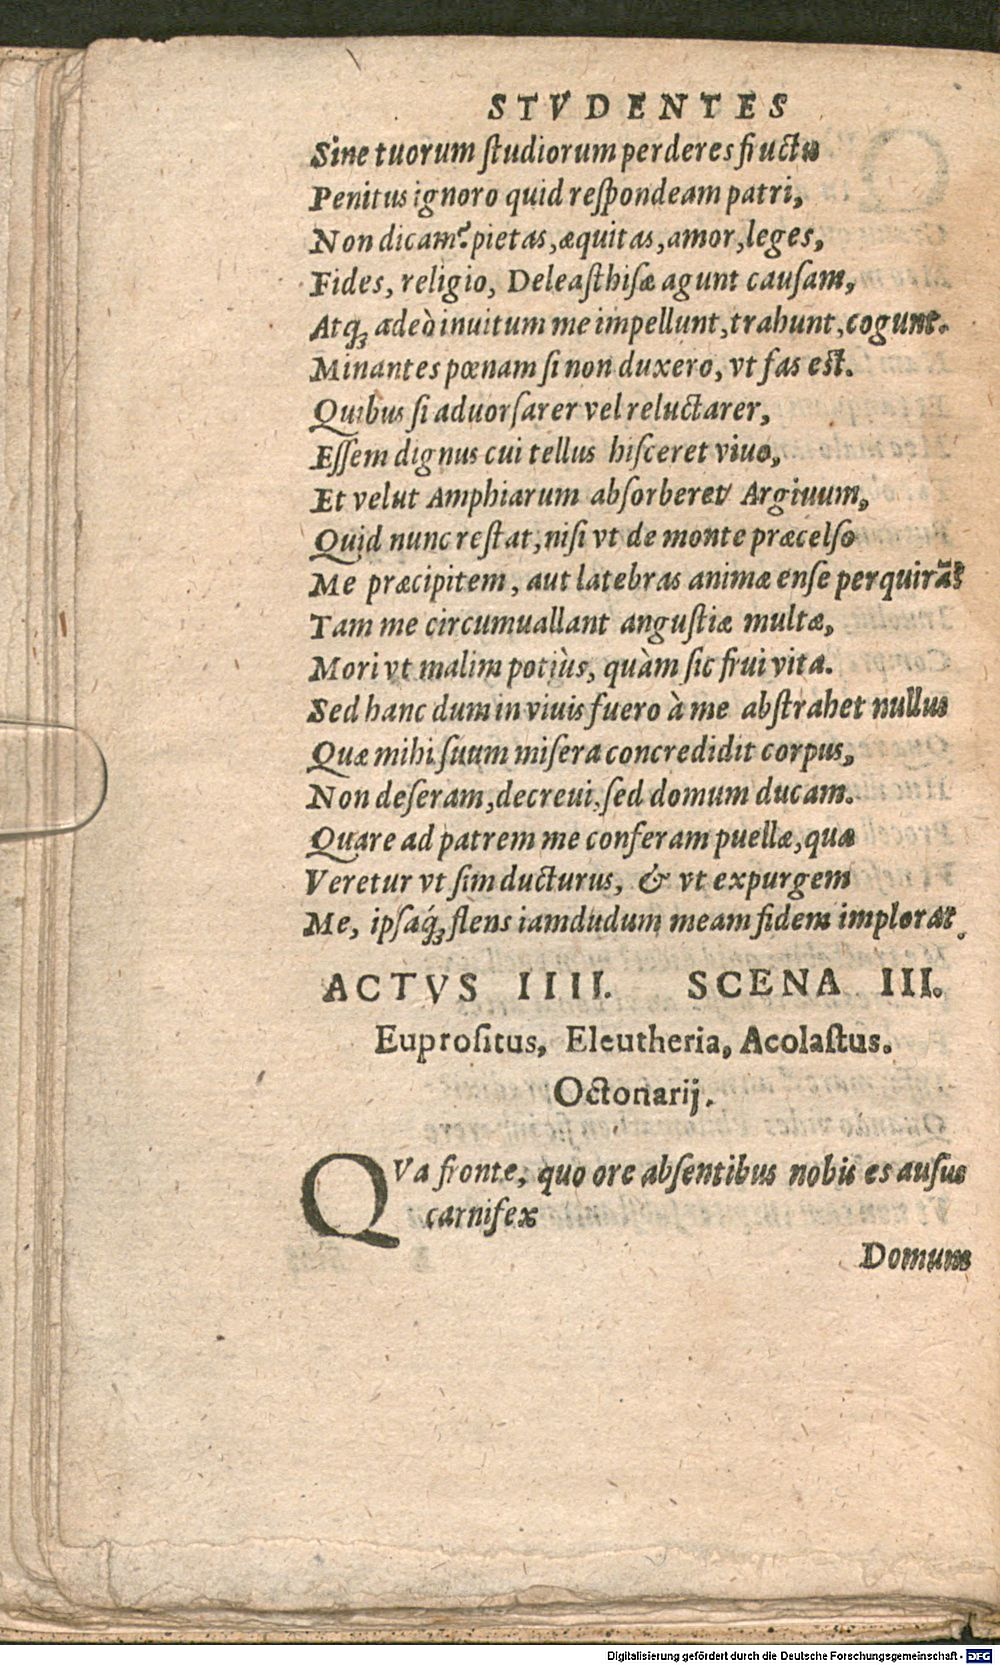 STVDENTES
Sine tuorum ſtudiorum perderes fructu
Penitus ignoro quid reſpondeam patri,
Non dicam? pietas, æquitas, amor, leges,
Fides, religio, Deleaſthiſæ agunt cauſam,
Atq; adeò inuitum me impellunt, trahunt, cogunt.
Minantes pœnam ſi non duxero, vt fas eſt.
Quibus ſi aduorſarer vel reluctarer,
Eſſem dignus cui tellus hiſceret viuo,
Et velut Amphiarum abſorberet Argiuum,
Quid nunc reſtat, niſi vt de monte præcelſo
Me præcipitem, aut latebras animæ enſe perquirā?
Tam me circumuallant anguſtiæ multæ,
Mori vt malim potiùs, quàm ſic frui vita.
Sed hanc dum in viuis fuero à me abſtrahet nullus
Quæ mihi ſuum miſera concredidit corpus,
Non deſeram, decreui, ſed domum ducam.
Quare ad patrem me conferam puellæ, quæ
Veretur vt ſim ducturus, & vt expurgem
Me, ipſaq́; flens iamdudum meam fidem implorat.
ACTVS IIII. SCENA III.
Euproſitus, Eleutheria, Acolaſtus.
Octonarij.
QVa fronte, quo ore abſentibus nobis es auſus
carnifex
Domum
Digitalisierung gefördert durch die Deutsche Forschungsgemeinschaft - DFG